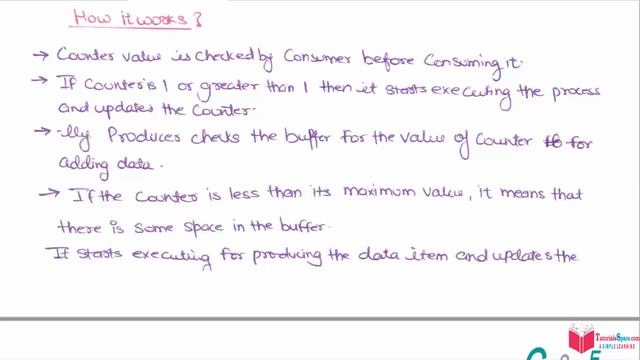 How it works?
→ Counter value is checked by Consumer before Consuming it.
→ If Counter is 1 or greater than 1 then it starts executing the process
and updates the Counter.
→ llly Producer checks the buffer for the value of Counter for
adding data.
→ If the Counter is less than its maximum value, it means that
there is some space in the buffer.
It starts executing for producing the data item and updates the
TutorialsSpace.com
A SIMPLE LEARNING